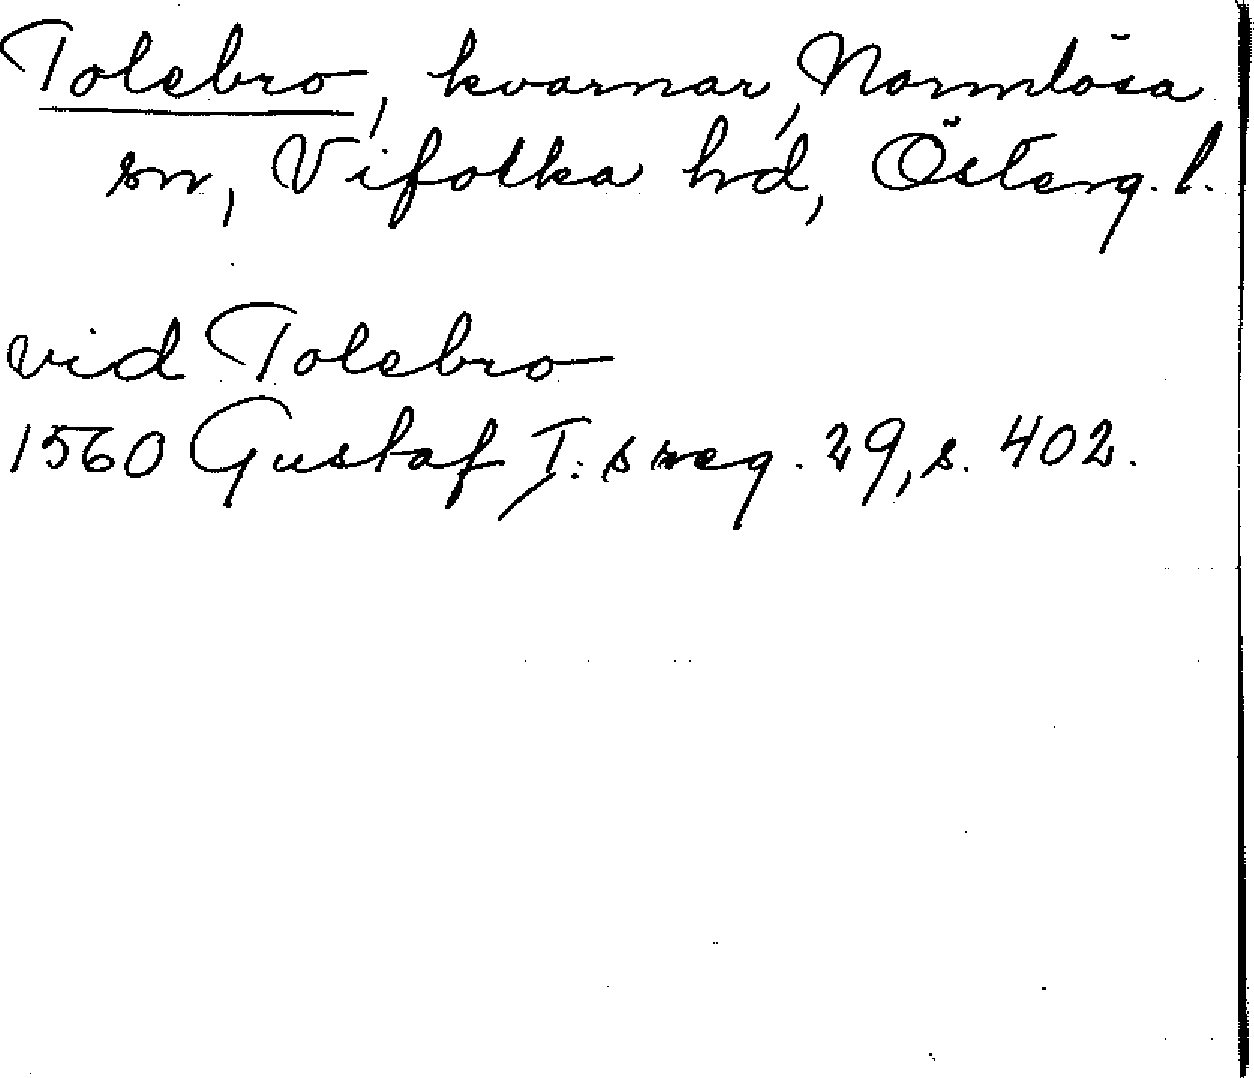 Tolebro, kvarnar, Normlösa
sn, Vifolka hd, Österg. l.
vid Tolebro
1560 Gustaf I: s reg. 29, s. 402.